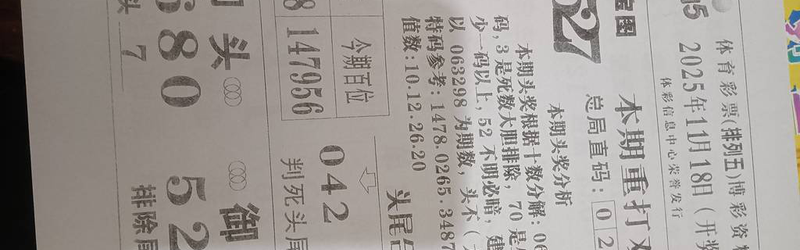 体育彩票(排列五)博彩资
2025年11月18日(开
体彩信息中心荣誉发行
本期重打
总局直码: 0 2
27
本期头奖分析
本期头奖根据十数分解:06
码,3是死数大胆排除,70是
少一码以上,52不明必暗,建
以063298为期数,头不(
特码参考:1478.0265.3487
值数:10.12.26.20
头尾
今期百位
042
147956
判死头尾
8
头
御
680
52
头 7
排除尾